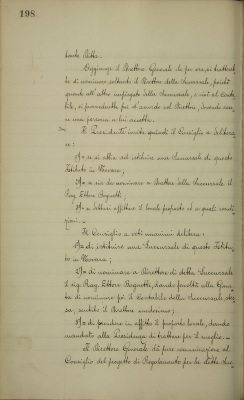 198
tante Ditta.
Soggiunge il Direttore Generale che per ora si tratterebbe
di nominare soltanto il Direttore della Succursale, poichè
quanto all'altro impiegato della Succursale, e cioè al Conta-
bile, si provvederebbe poi d'accordo col Direttore,
a una persona a lui
Il Presidente invita quindi il Consiglio a delibera-
re:
1º= se si abbia ad istituire una Succursale di questo
Istituto in Novara;
2º= se sia da nominare a Direttore della Succursale il
Rag. Ettore Bognetti;
3º= se debbasi affittare il locale proposto ed a quali condi-
zioni.
Il Consiglio a voti unanimi delibera:
1º= di istituire una Succursale di questo Istitu-
to in Novara;
2º= di nominare a Direttore di detta Succursale
il sig. Rag. Ettore Bognetti, dando facoltà alla
di nominare poi il Contabile della Succursale stes-
sa, sentito il Direttore medesimo;
3º= di prendere in affitto il proposto locale, dando
mandato alla Presidenza di trattare per il meglio.
Il Direttore Generale dà pure comunicazione al
Consiglio del progetto di Regolamento per la detta Suc-